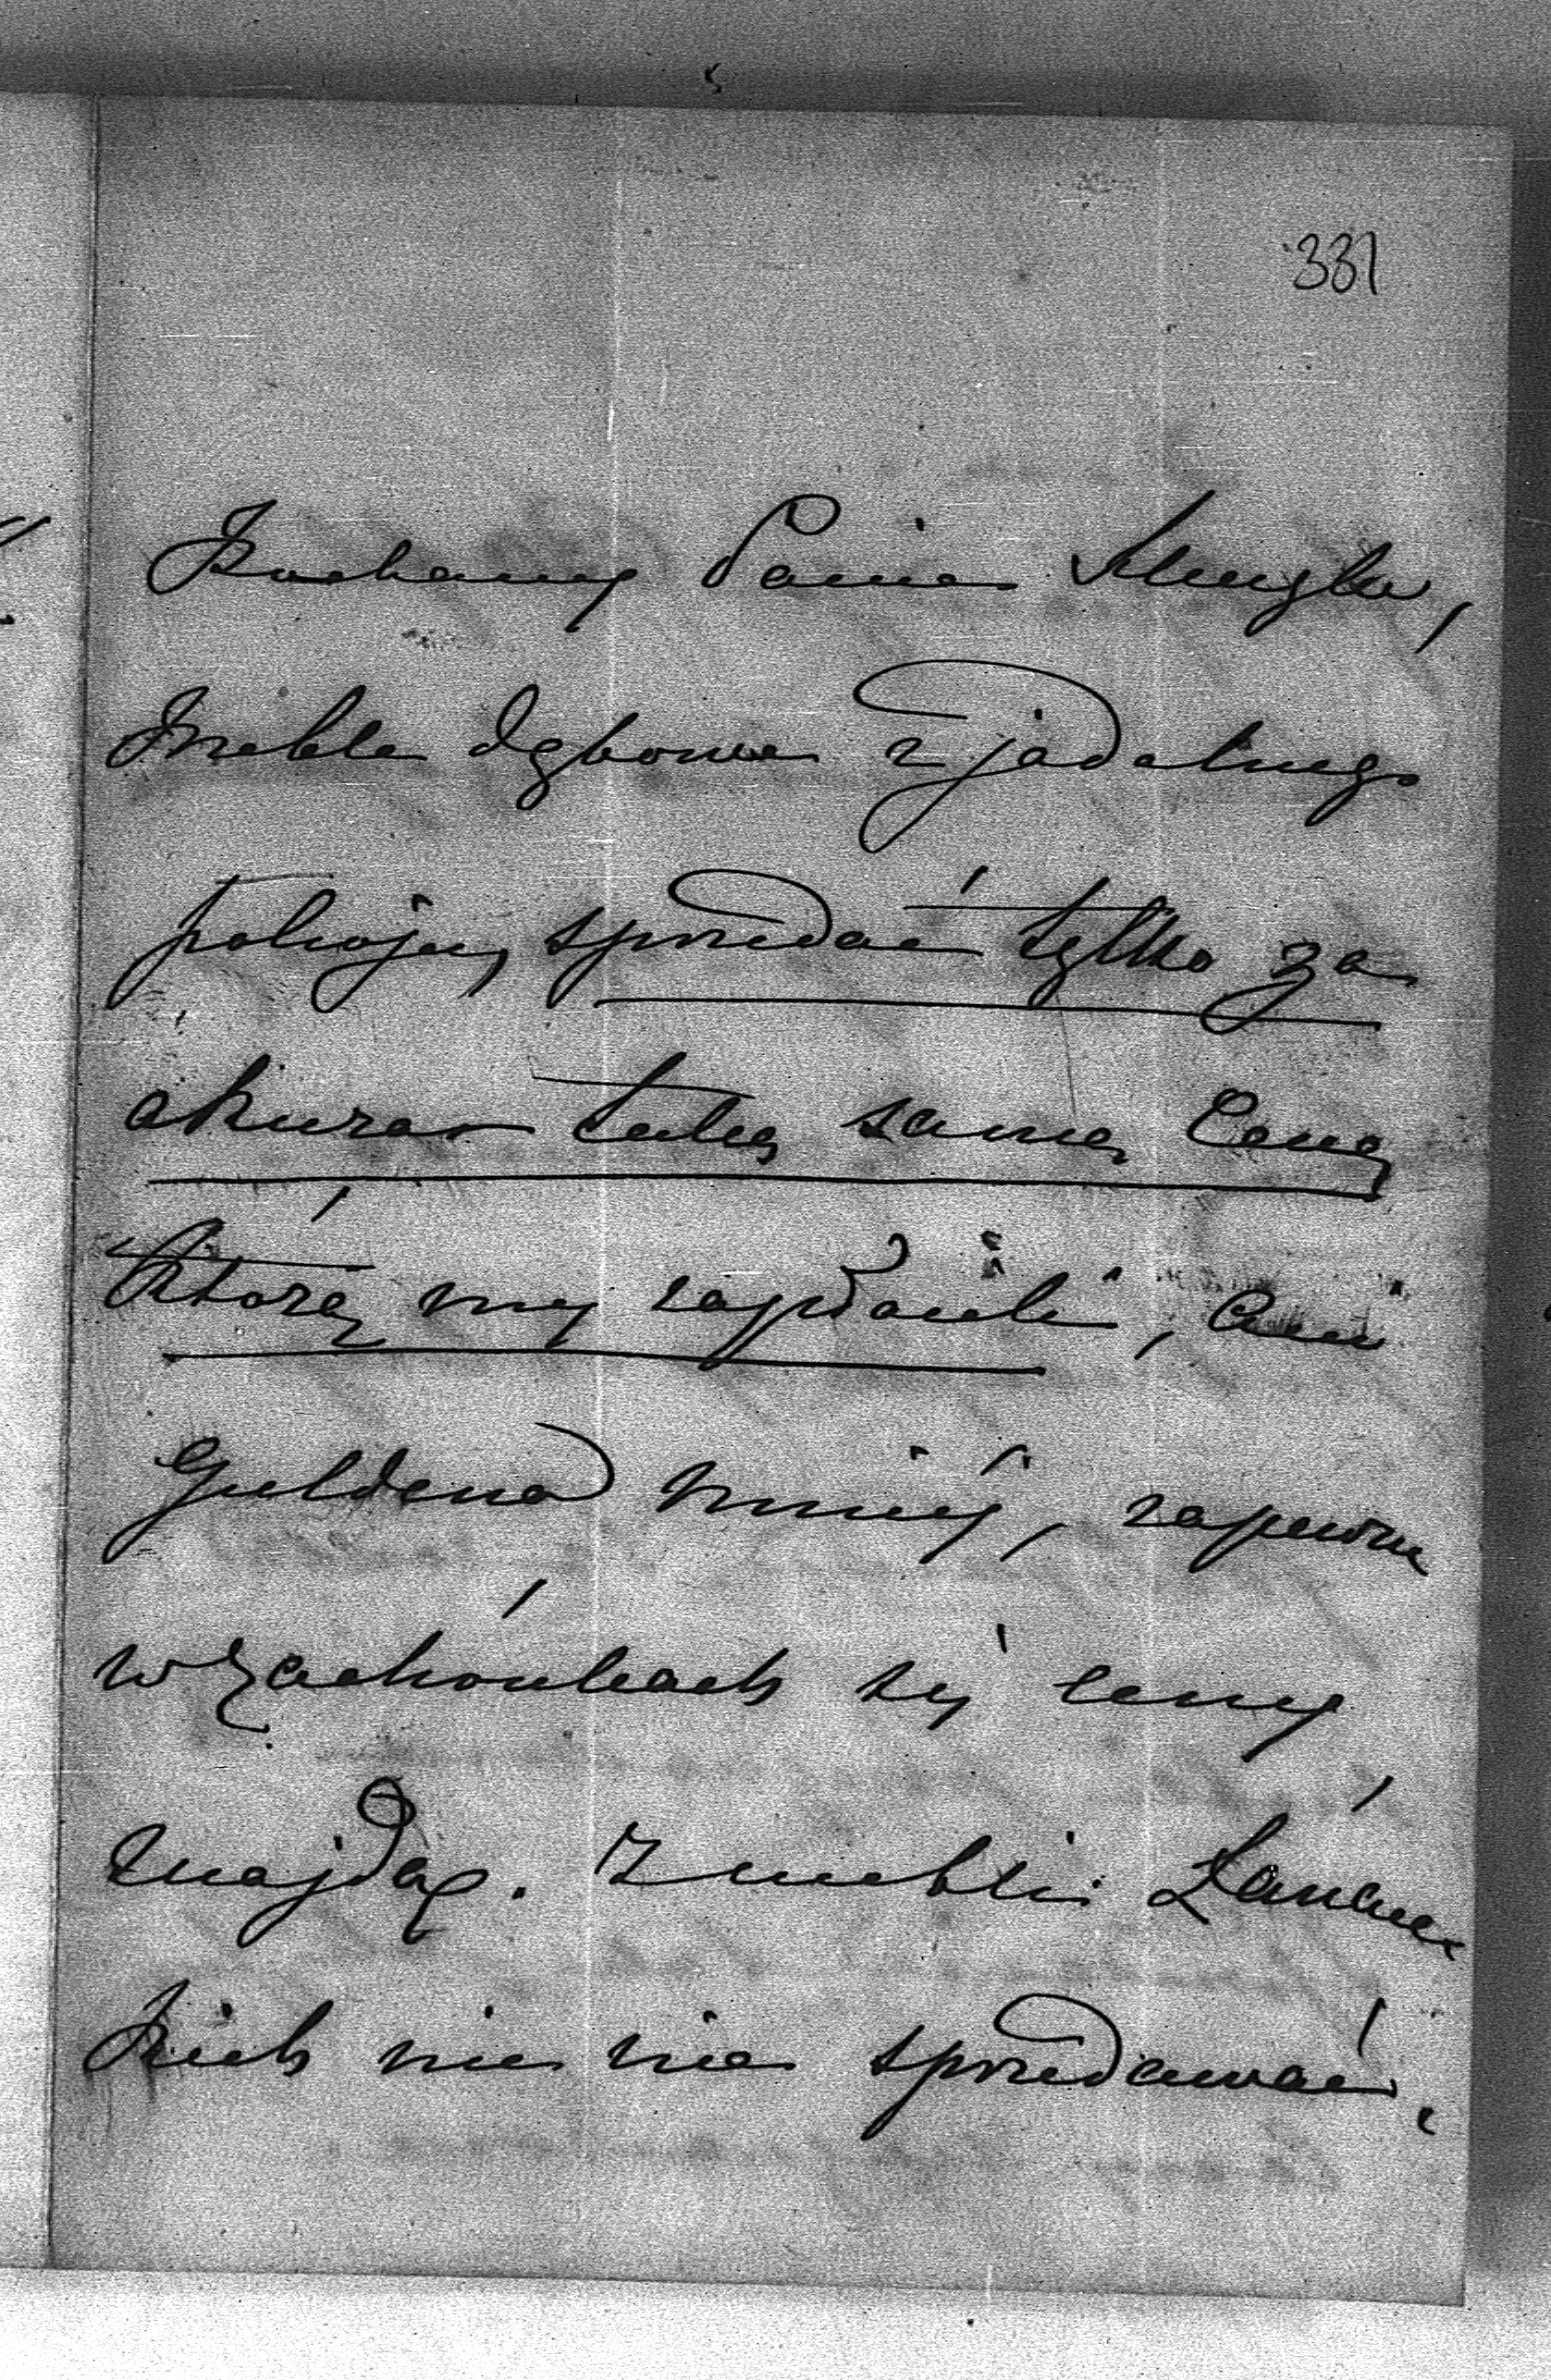 331
Kochany Panie
Meble dębowe z jadalnego
pokoju, sprzedać tylko za
akurat taką samą Cenę
którą my zapłacili, Ani
Guldena mniej, zapewne
w rachónkach się ceny
znajdą. Z mebli Łańcuc
kich nic nie sprzedawać.